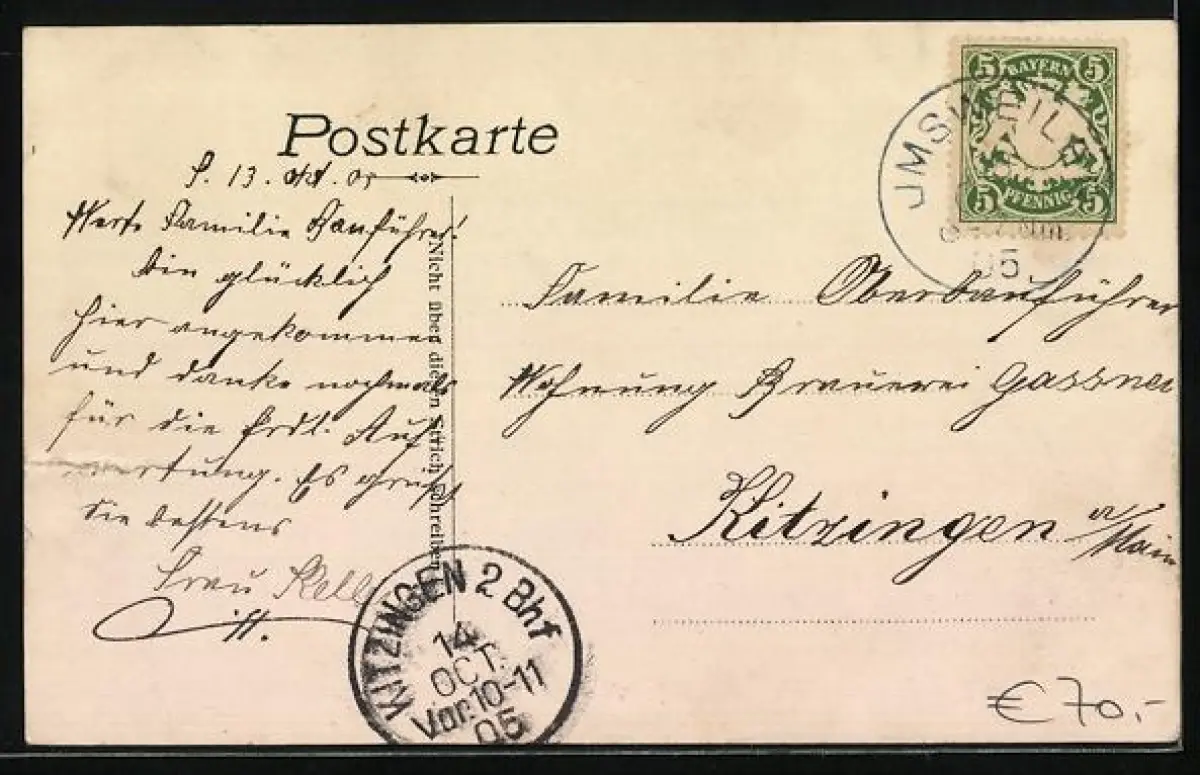 Postkarte
S. 13. Okt. 05
Werte Familie Bauführer!
Bin glücklich
hier angekommen
und danke nochmals
für die frdl. Auf
wartung. Es grüßt
Sie bestens
Frau
Nicht über diesen Strich schreiben
BAYERN
5 5
5 PFENNIG 5
05
Familie Oberbauführer
Wohnung Brauerei Gassner
Kitzingen a/Main
KITZINGEN 2 Bhf
14
OCT.
Vor. 10-11
05
€ 70,-